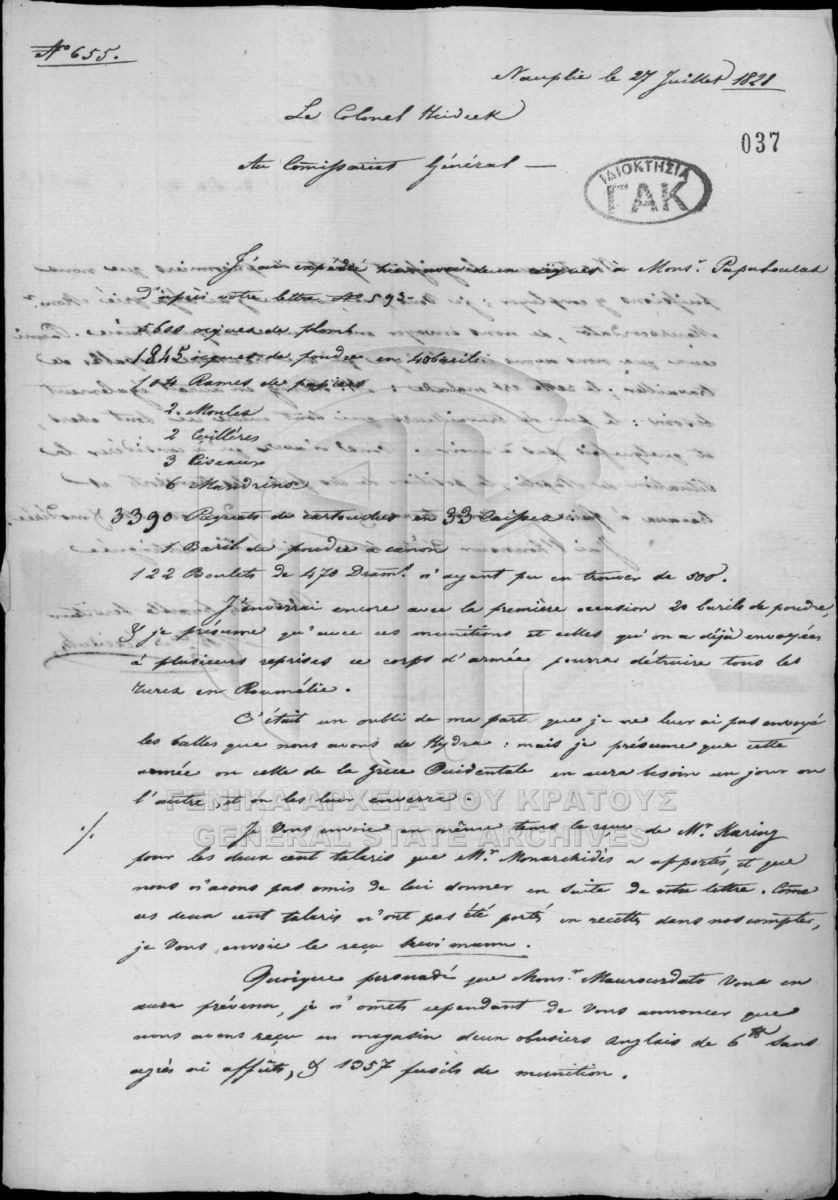 No 655.
Nauplie le 27 Juillet 1828
Le Colonel Heideck
037
Au Comissariat Général —
ΙΔΙΟΚΤΗΣΙΑ
ΓΑΚ
J'ai expédié hier avec un à Monsr. Papaboulas
d'après votre lettre No 593-
ocques de plomb
1845 ocques de poudre en 40 barils
104 Rames de papiers
2. Moules
2 Cuillères
3 Ciseaux
6 Mandrins
3390 Paquets de cartouches en 33 Caisses.
1 Baril de poudre à canon
122 Boulets de 470 Dram. n'ayant pu en trouver de 500.
J'enverrai encore avec la première occasion 20 barils de poudre,
& je présume qu'avec ces munitions et celles qu'on a déjà envoyées
à plusieurs reprises ce corps d'armée pourra détruire tous les
turcs en Roumélie.
C'était un oubli de ma parte que je ne leur ai pas envoyé
les balles que nous avons de Hydra: mais je présume que cette
armée ou celle de la Grèce Occidentale en aura besoin un jour ou
l'autre, et on les leur enverra.
ΓΕΝΙΚΑ ΑΡΧΕΙΑ ΤΟΥ ΚΡΑΤΟΥΣ
GENERAL STATE ARCHIVES
·/. Je Vous envoie en même tems le reçu de Mr
pour les deux cent talaris que Mr. Monarchidès a apportés, et que
nous n'avons pas omis de lui donner en suite de votre lettre. Come
ces deux cent talaris n'ont pas été portés en recette dans nos comptes,
je Vous envoie le reçu brevi manu.
Quoique persuadé que Monsr. Maurocordato Vous en
aura prévenu, je n'omets cependant de Vous annoncer que
nous avons reçu en magasin deux obusiers Anglais de 6 sans
agrès ni affûts, & 1357 fusils de munition.